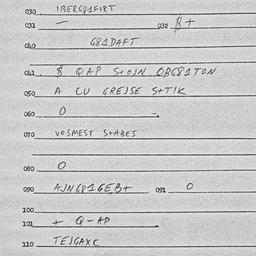 030 IBERG81FIRT
031 – 032 $+
040 G81DAFT
041 $ QAP S+OJN OBG81TON
050 A CU GREJSE S+TIK
060 O -.
070 VOSMEST S+ABES
080 O
090 AJNG81GEB+ 091 O
100
101 + Q-AP
110 TEJGAXC